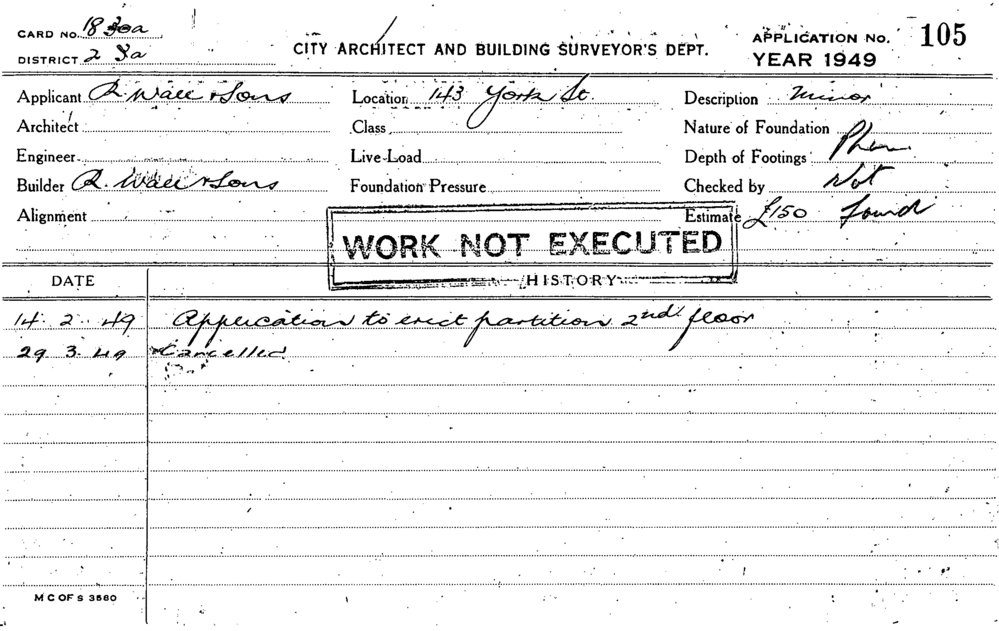 CARD NO. 18 30a
DISTRICT 2 3a
CITY ARCHITECT AND BUILDING SURVEYOR'S DEPT.
APPLICATION NO. 105
YEAR 1949
Applicant R. Wall & Sons
Location 143 York St.
Description Minor
Architect
Class
Nature of Foundation
Engineer
Live Load
Depth of Footings
Builder R. Wall & Sons
Foundation Pressure
Checked by Not
Alignment
Estimate £150 found
WORK NOT EXECUTED
DATE
HISTORY
14. 2. 49 Application to erect partition 2nd floor
29. 3. 49 Cancelled
M C OF S 3560